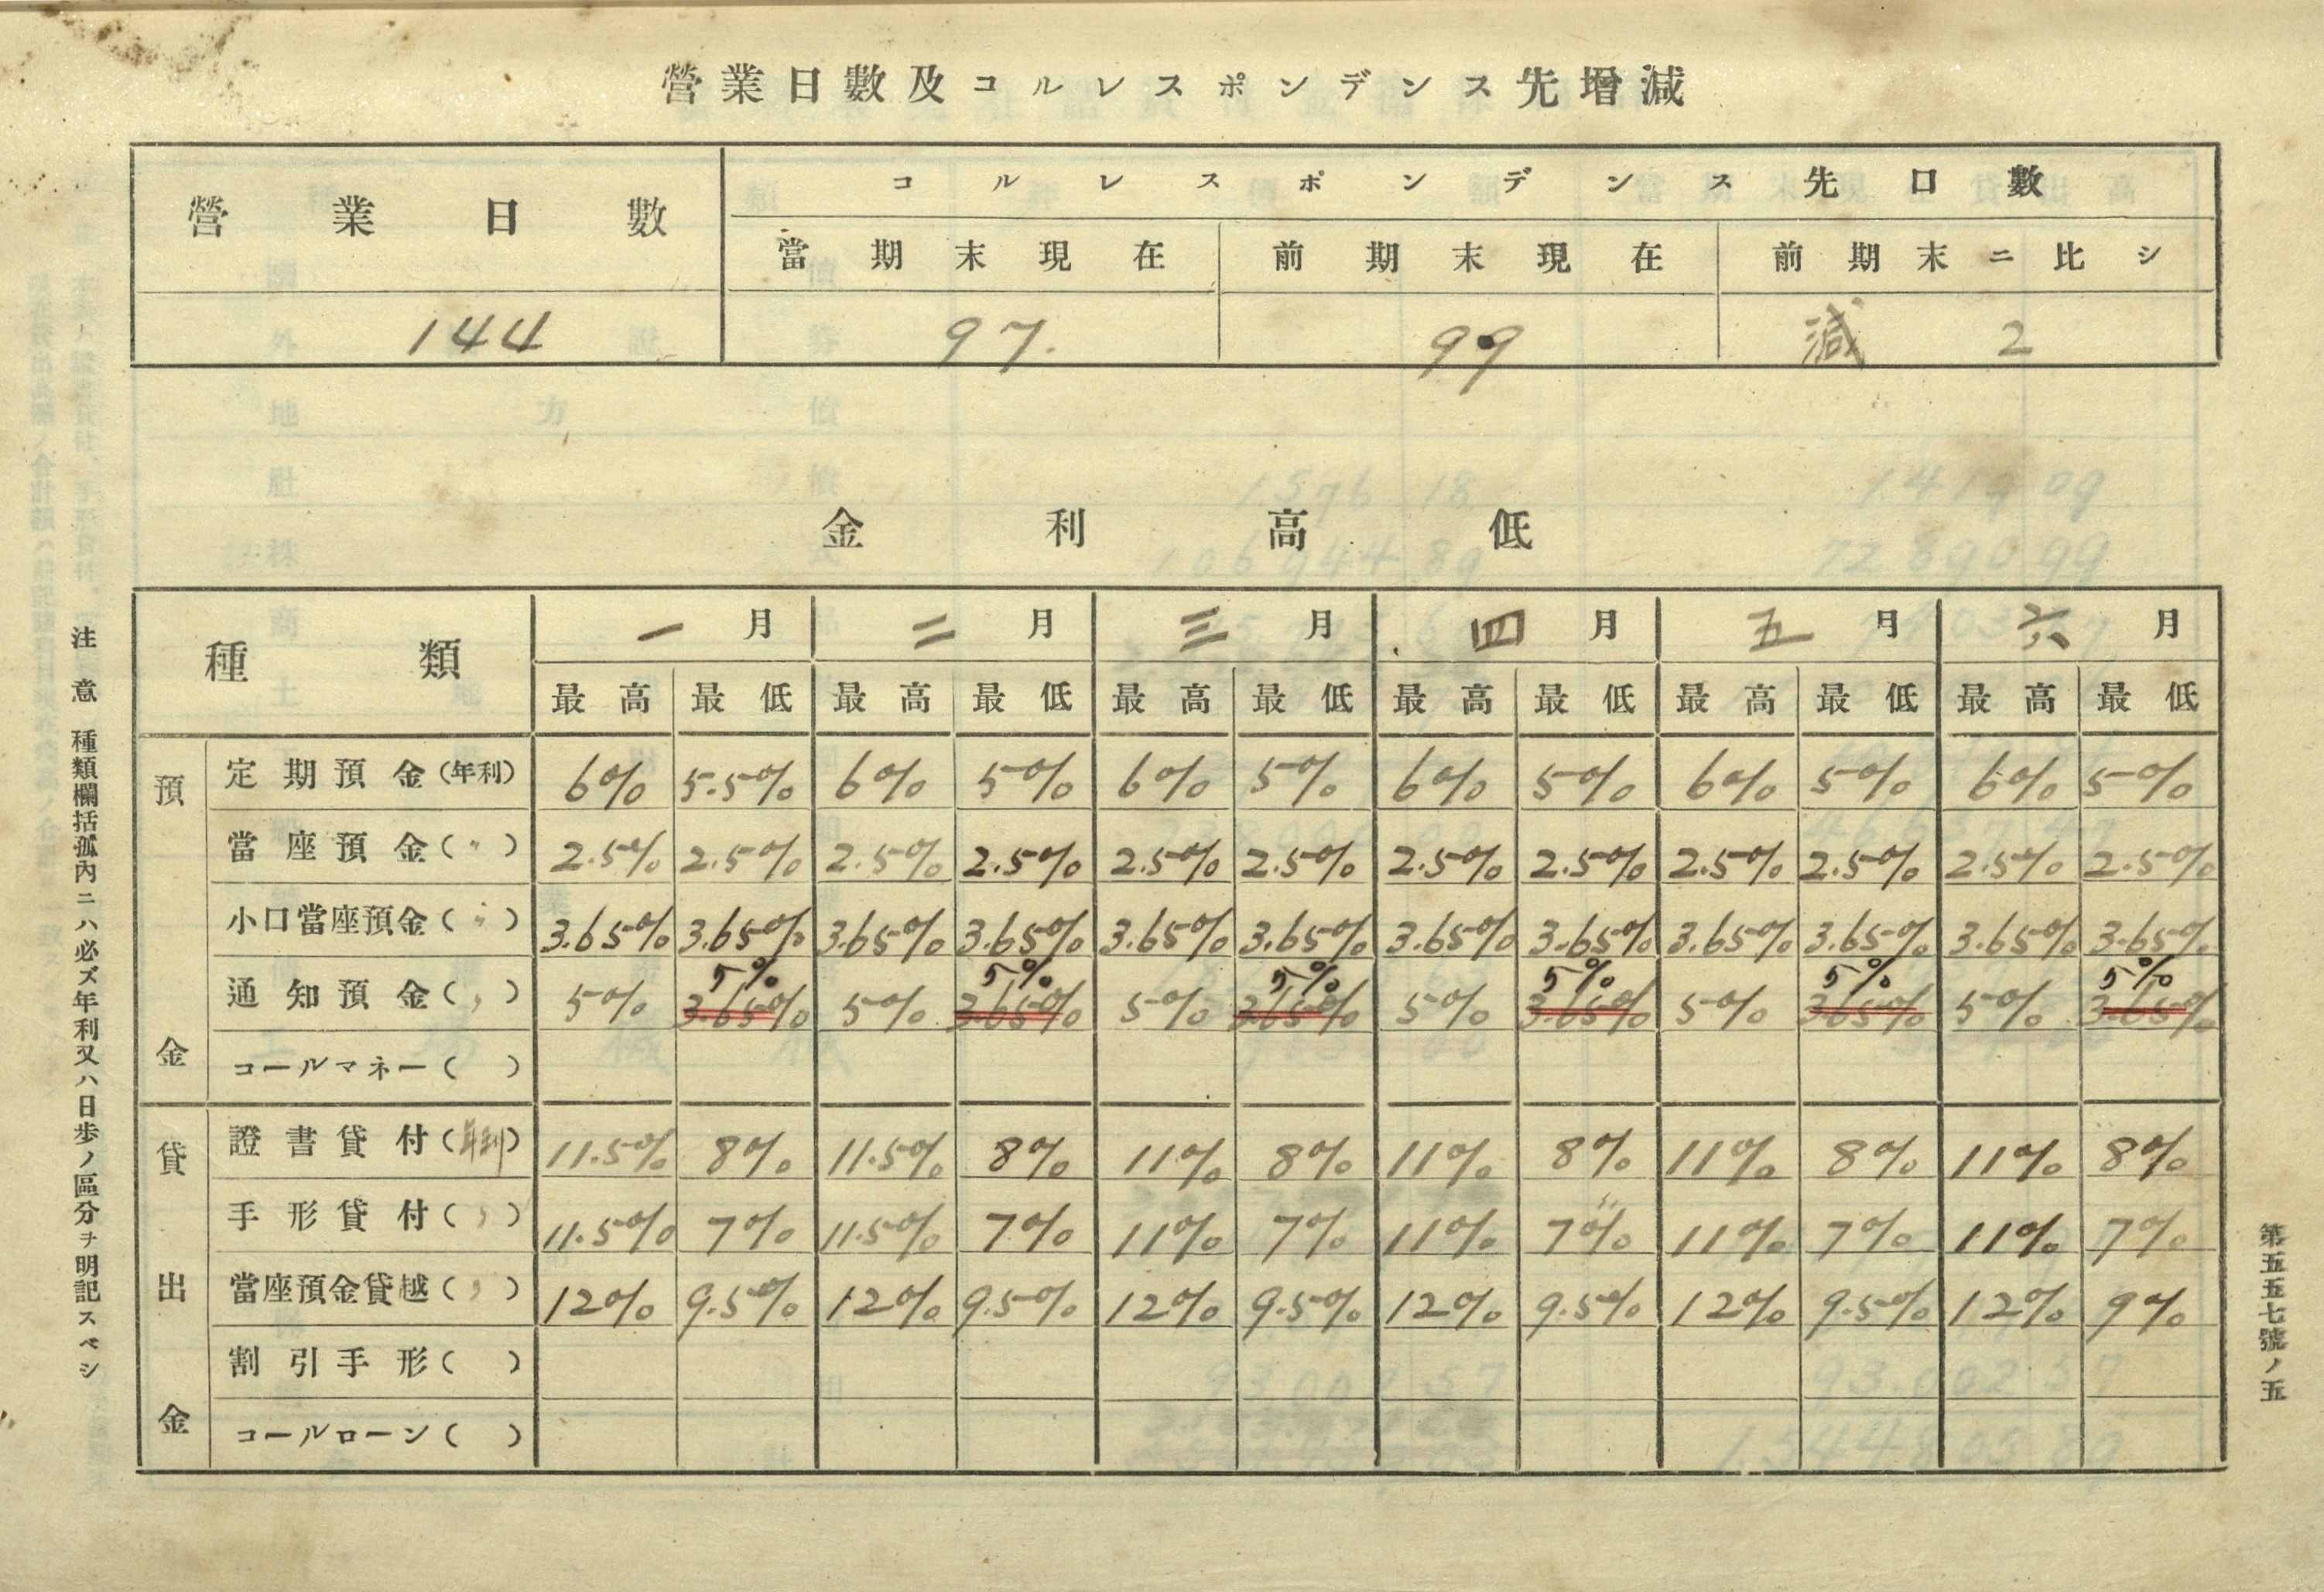 營業日數及コルレスポンデンス先增減
營業日數 コルレスポンデンス先口數
當期末現在 前期末現在 前期末ニ比シ
144 97. 99 減 2
金利高低
種類 一月 二月 三月 四月 五月 六月
最高 最低 最高 最低 最高 最低 最高 最低 最高 最低 最高 最低
預金
定期預金(年利) 6% 5.5% 6% 5% 6% 5% 6% 5% 6% 5% 6% 5%
當座預金(〃) 2.5% 2.5% 2.5% 2.5% 2.5% 2.5% 2.5% 2.5% 2.5% 2.5% 2.5% 2.5%
小口當座預金(〃) 3.65% 3.65% 3.65% 3.65% 3.65% 3.65% 3.65% 3.65% 3.65% 3.65% 3.65% 3.65%
5% 5% 5% 5% 5% 5%
通知預金(〃) 5% 3.65% 5% 3.65% 5% 3.65% 5% 3.65% 5% 3.65% 5% 3.65%
コールマネー( )
貸出金
證書貸付(年利) 11.5% 8% 11.5% 8% 11% 8% 11% 8% 11% 8% 11% 8%
手形貸付(〃) 11.5% 7% 11.5% 7% 11% 7% 11% 7% 11% 7% 11% 7%
當座預金貸越(〃) 12% 9.5% 12% 9.5% 12% 9.5% 12% 9.5% 12% 9.5% 12% 9%
割引手形( )
コールローン( )
注意 種類欄括孤內ニハ必ズ年利又ハ日步ノ區分ヲ明記スベシ
第五五七號ノ五